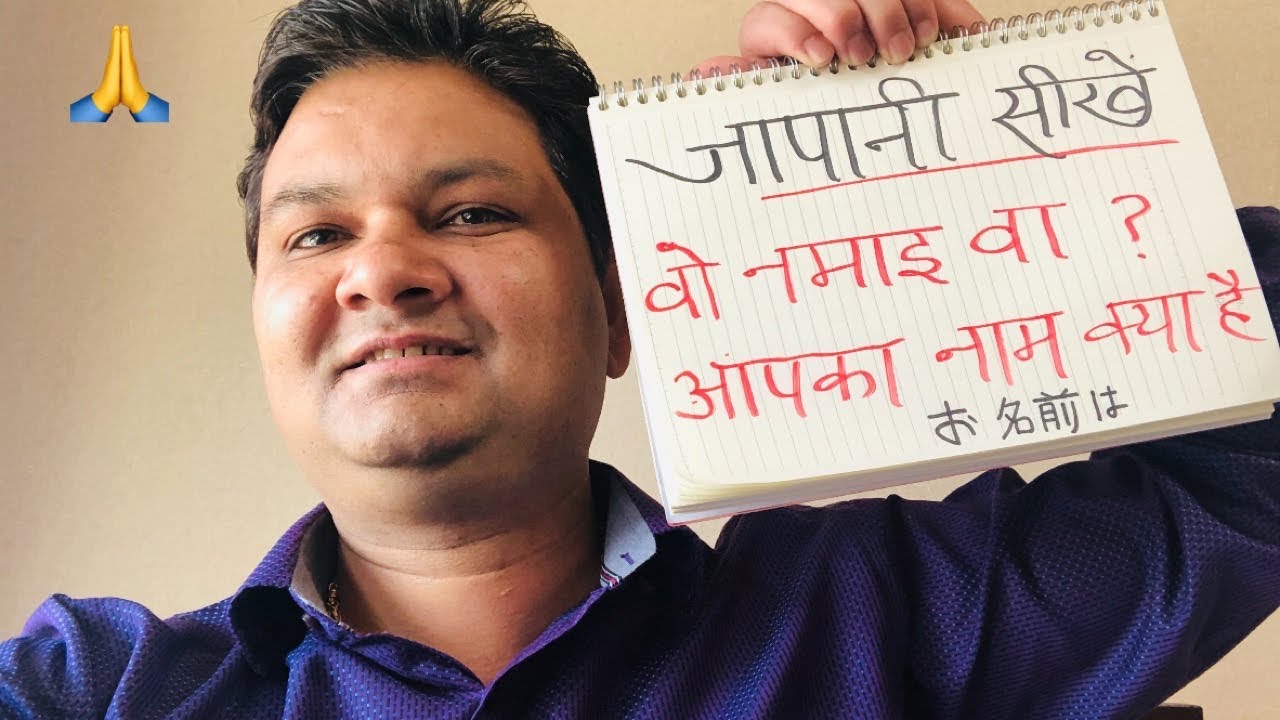 जापानी सीखें
वो नमाइ वा ?
आपका नाम क्या है
お名前は